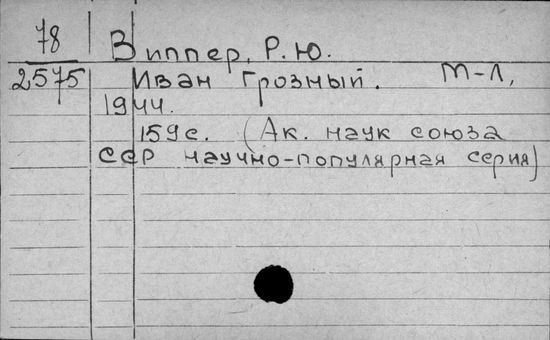 78 Виппер, Р.Ю.
2575 Иван Грозный. М-Л,
1944.
159с. (Ак. наук союза
ССР научно-популярная серия)